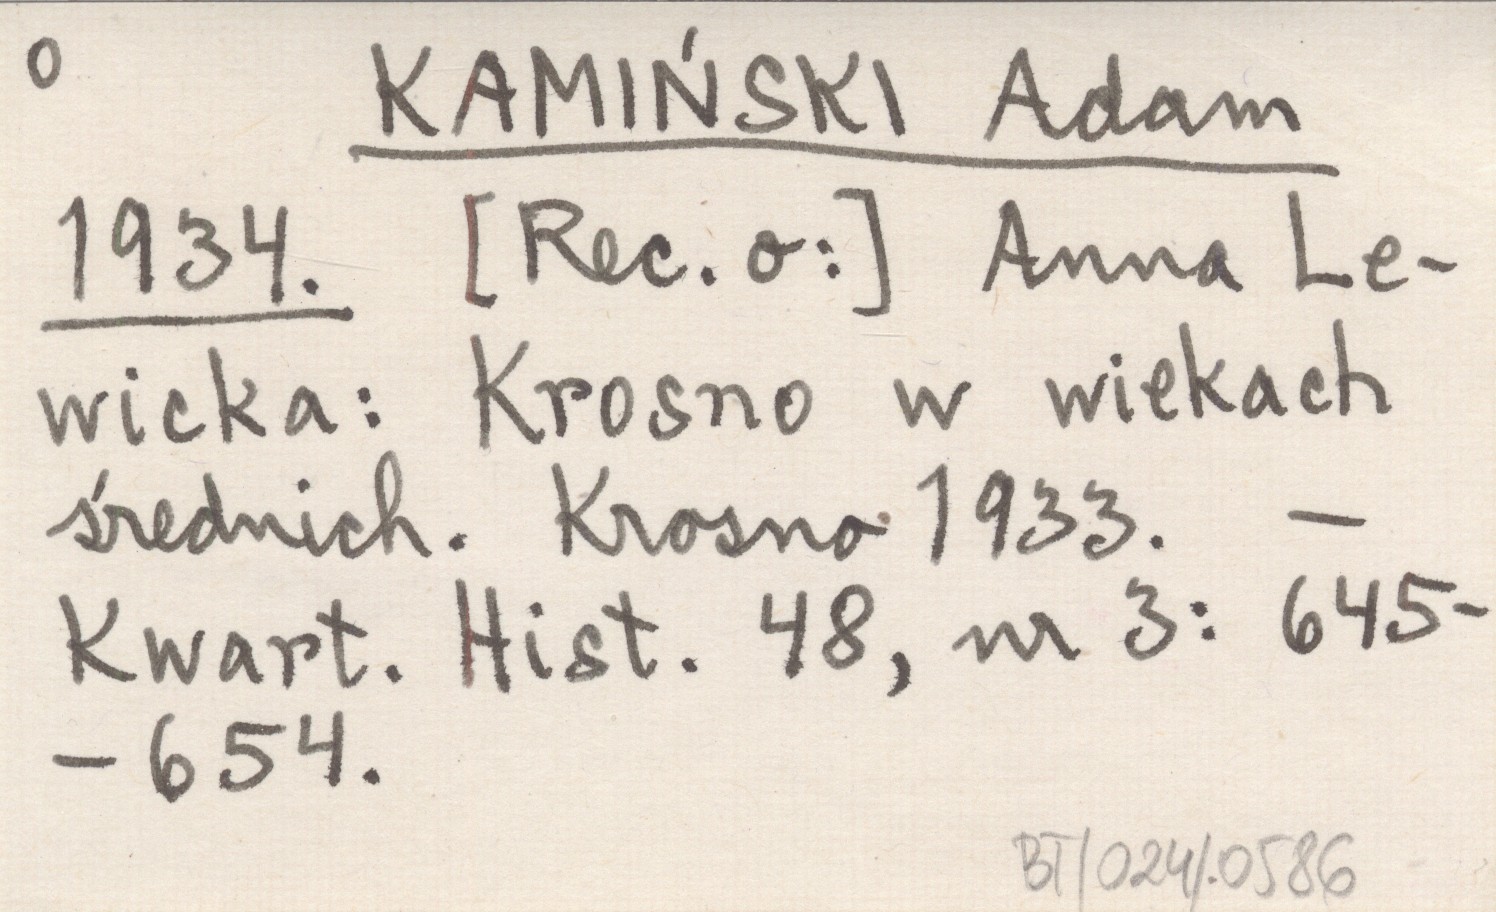 o
KAMIŃSKI Adam
1934. [Rec. o:] Anna Le-
wicka: Krosno w wiekach
średnich. Krosno 1933. —
Kwart. Hist. 48, nr 3: 645-
-654.
BT/024/.0586